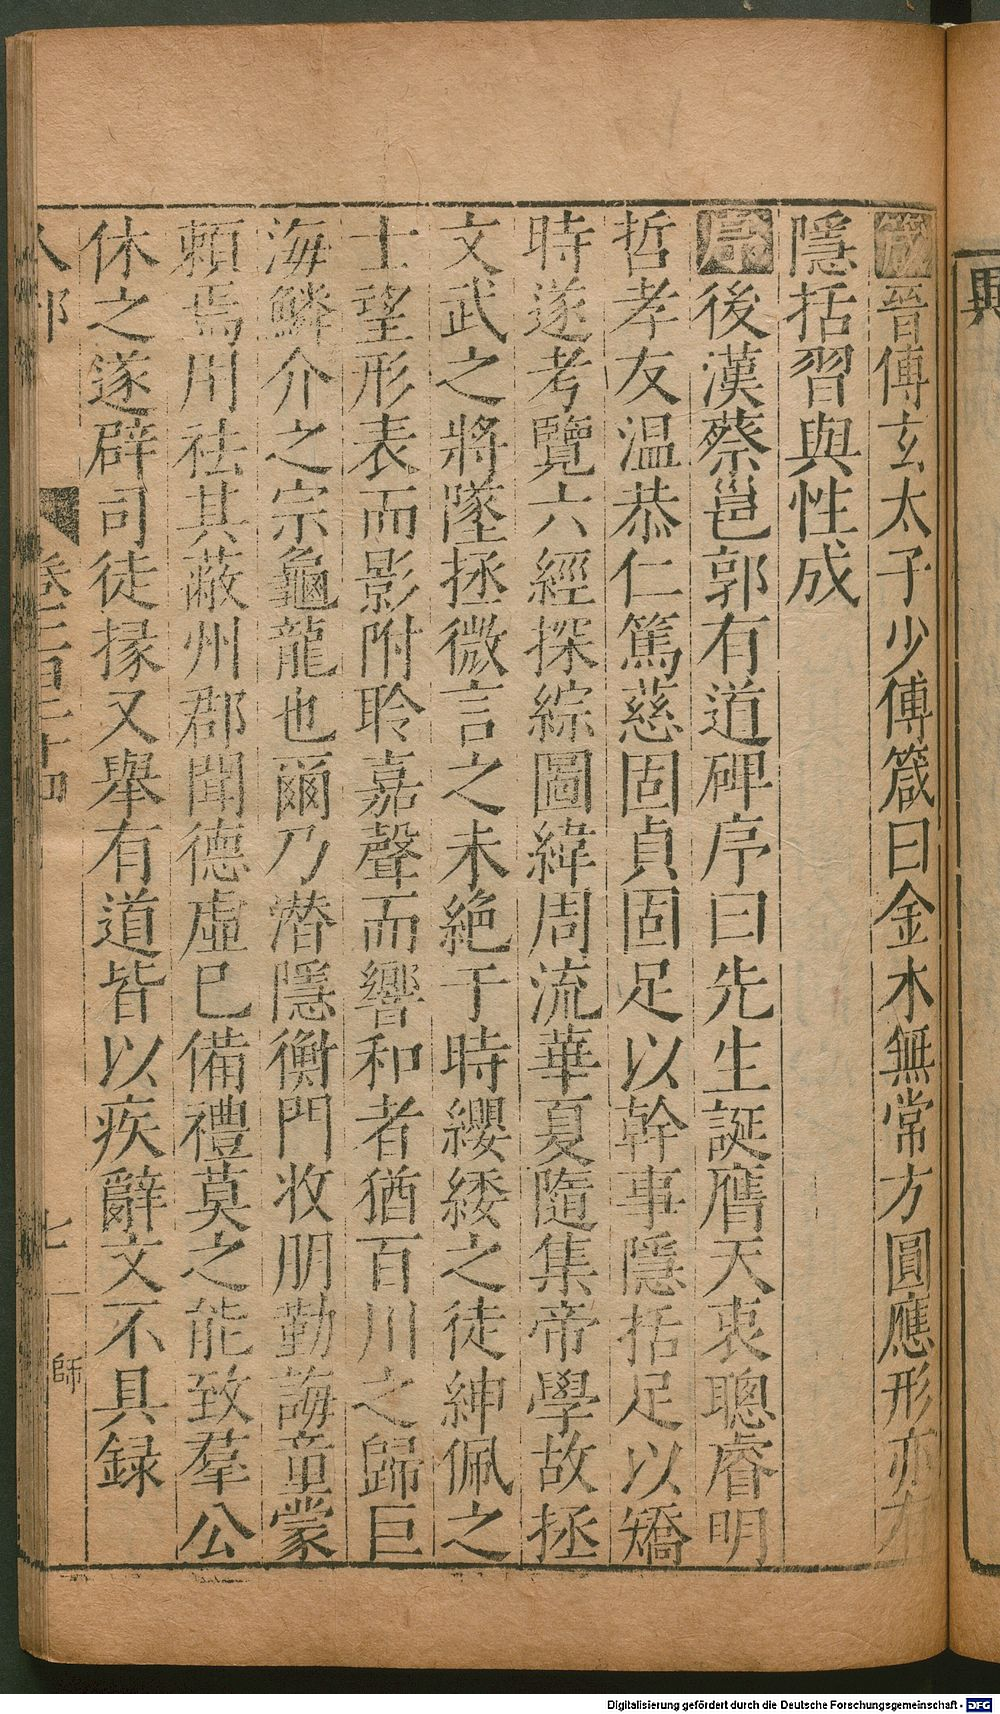 箴晉傅玄太子少傅箴曰金水無常方圓應形亦有
隱括習與性成
後漢蔡邕郭有道碑序曰先生誕膺天衷聰睿明
哲孝友温恭仁篤慈固貞固足以幹事隱括足以矯
時遂考覽六經探綜圖緯周流華夏隨集帝學故拯
文武之將墜拯微言之未絶于時纓緌之徒紳佩之
士望形表而影附聆嘉聲而響和者猶百川之歸巨
海鱗介之宗龜龍也爾乃潜隱衡門收朋勤誨童蒙
頼焉用祛其蔽州郡聞德虚巳備禮莫之能致羣公
休之遂辟司徒掾又舉有道皆以疾辭文不具録
人部
卷二百五十四
七
師
Digitalisierung gefördert durch die Deutsche Forschungsgemeinschaft - DFG